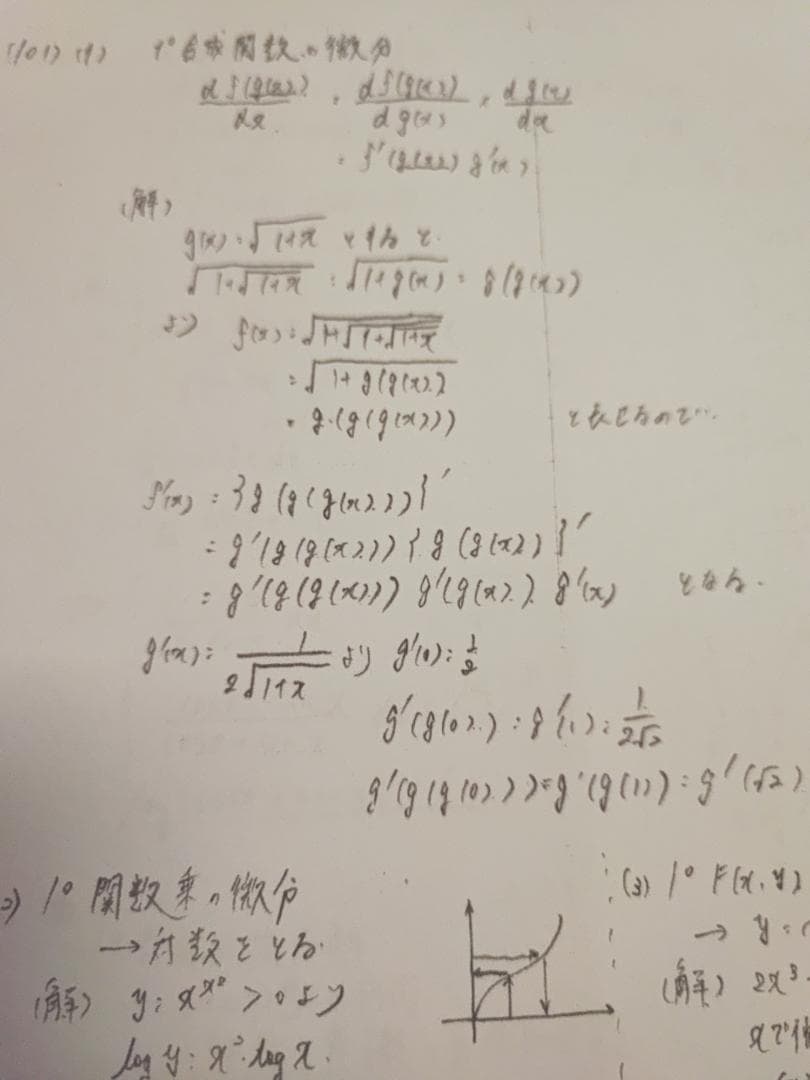 (101) (1) 1° 合成関数の微分
df(g(x))/dx = df(g(x))/dg(x) × dg(x)/dx
= f'(g(x)) g'(x)
(解)
g(x) = √(1+x) とすると.
√(1+√(1+x)) = √(1+g(x)) = g(g(x))
より f(x) = √(1+√(1+√(1+x)))
= √(1+g(g(x)))
= g(g(g(x))) と表せるので…
f'(x) = {g(g(g(x)))}'
= g'(g(g(x))) {g(g(x))}'
= g'(g(g(x))) g'(g(x)) g'(x) となる.
g'(x) = 1/(2√(1+x)) より g'(0) = 1/2
g'(g(0)) = g'(1) = 1/(2√2)
g'(g(g(0))) = g'(g(1)) = g'(√2)
2) 1° 関数乗の微分
→ 対数をとる.
(解) y = x^{x²} > 0 より
log y = x² log x.
(3) 1° F(x, y)
→ y =
(解) 2x³
xで